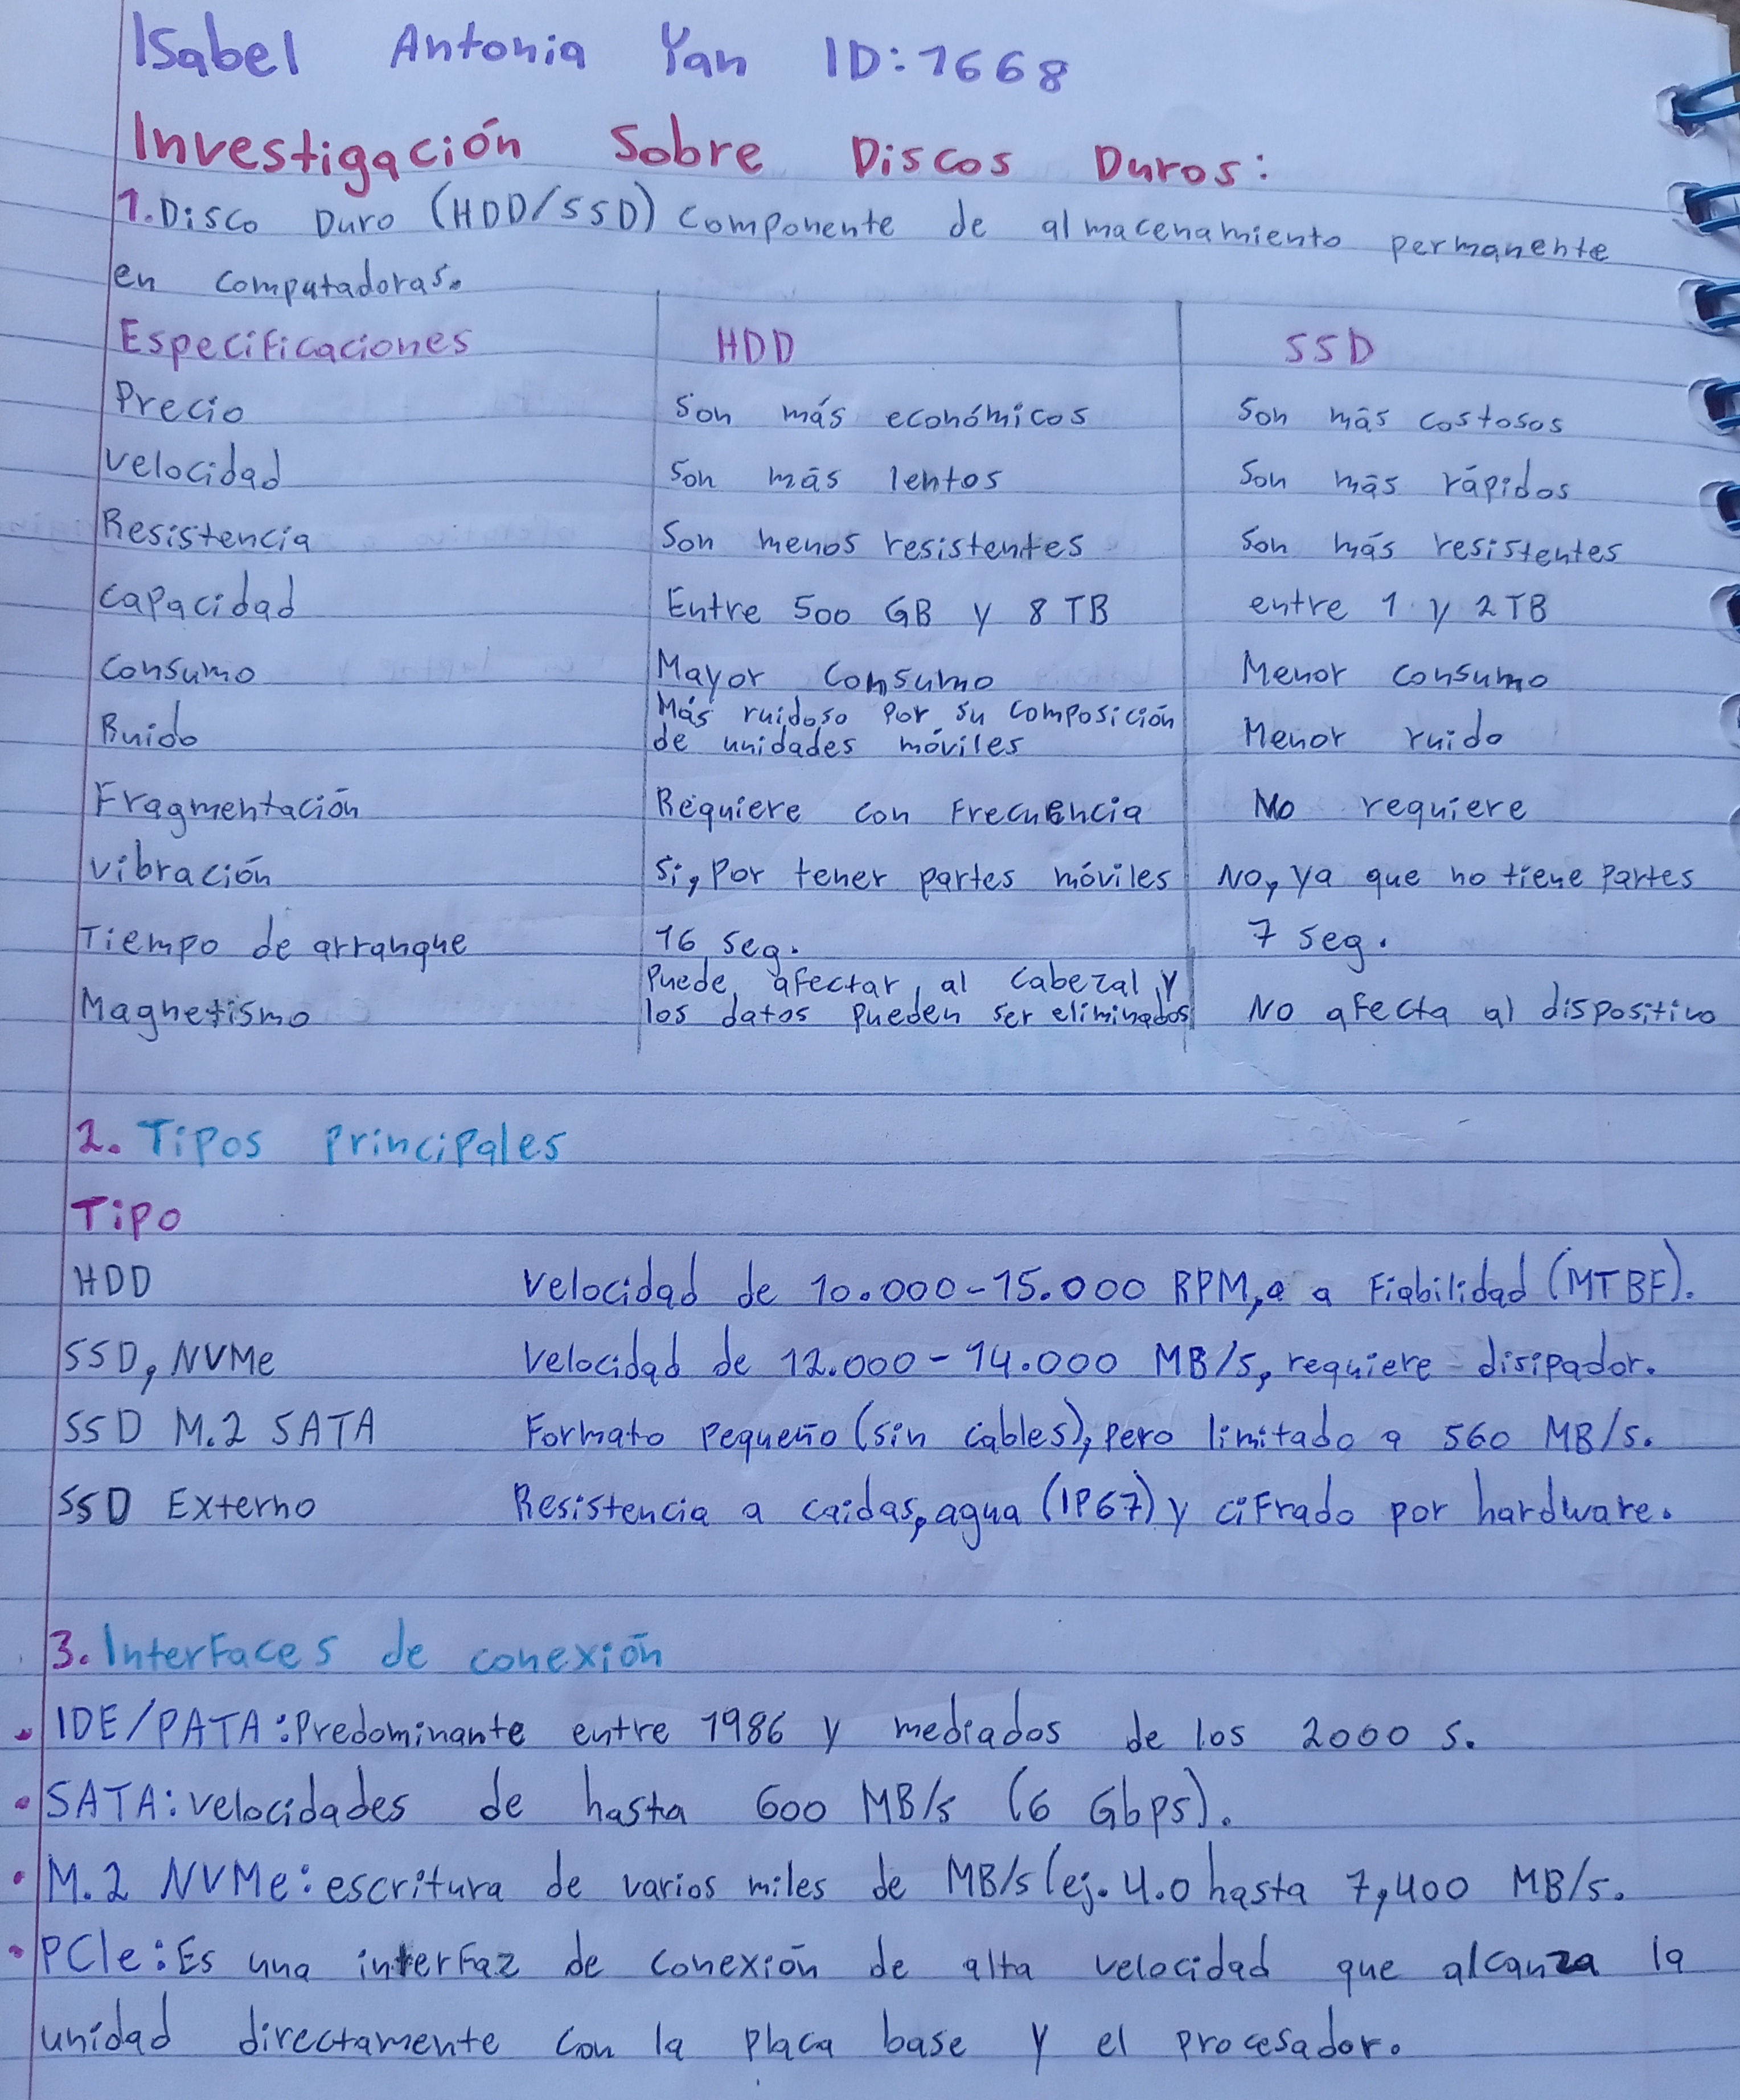 Isabel Antonia Yan ID:1668
Investigación Sobre Discos Duros:
1. Disco Duro (HDD/SSD) Componente de almacenamiento permanente
en computadoras.
Especificaciones HDD SSD
Precio Son más económicos Son más costosos
velocidad Son más lentos Son más rápidos
Resistencia Son menos resistentes Son más resistentes
Capacidad Entre 500 GB y 8 TB entre 1 y 2 TB
Consumo Mayor Consumo Menor consumo
Ruido Más ruidoso por su composición de unidades móviles Menor ruido
Fragmentación Requiere con Frecuencia No requiere
vibración Si, Por tener partes móviles No, ya que no tiene Partes
Tiempo de arranque 16 seg. 7 seg.
Magnetismo Puede afectar al cabezal y los datos pueden ser eliminados No afecta al dispositivo
2. Tipos Principales
Tipo
HDD Velocidad de 10.000-15.000 RPM, a Fiabilidad (MTBF).
SSD, NVMe Velocidad de 12.000-14.000 MB/s, requiere disipador.
SSD M.2 SATA Formato Pequeño (sin cables), pero limitado a 560 MB/s.
SSD Externo Resistencia a caidas, agua (IP67) y cifrado por hardware.
3. Interfaces de conexión
• IDE/PATA: Predominante entre 1986 y mediados de los 2000 s.
• SATA: velocidades de hasta 600 MB/s (6 Gbps).
• M.2 NVMe: escritura de varios miles de MB/s (ej. 4.0 hasta 7,400 MB/s.
• PCIe: Es una interfaz de conexión de alta velocidad que alcanza la
unidad directamente con la placa base y el procesador.